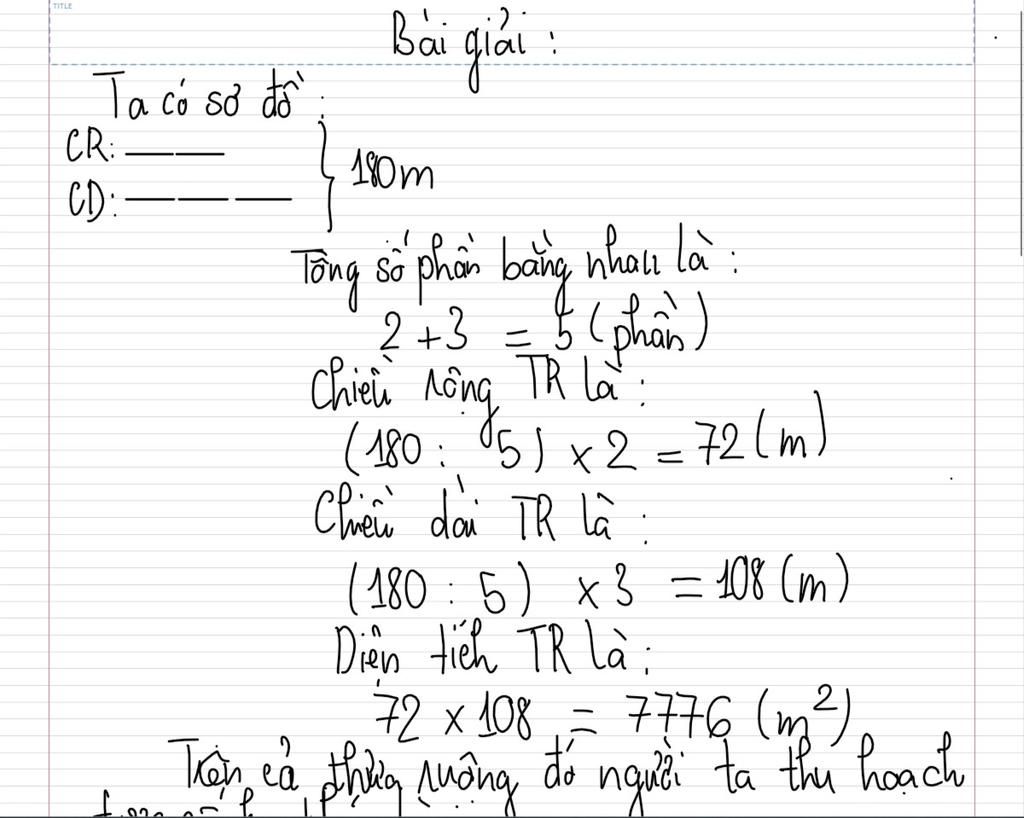 TITLE
Bài giải :
Ta có sơ đồ :
CR:
180m
CD:
Tổng số phần bằng nhau là :
2 + 3 = 5 (phần)
Chiều rộng TR là :
(180 : 5) x 2 = 72 (m)
Chiều dài TR là :
(180 : 5) x 3 = 108 (m)
Diện tích TR là :
72 x 108 = 7776 (m²)
Trên cả thửa ruộng đó người ta thu hoạch